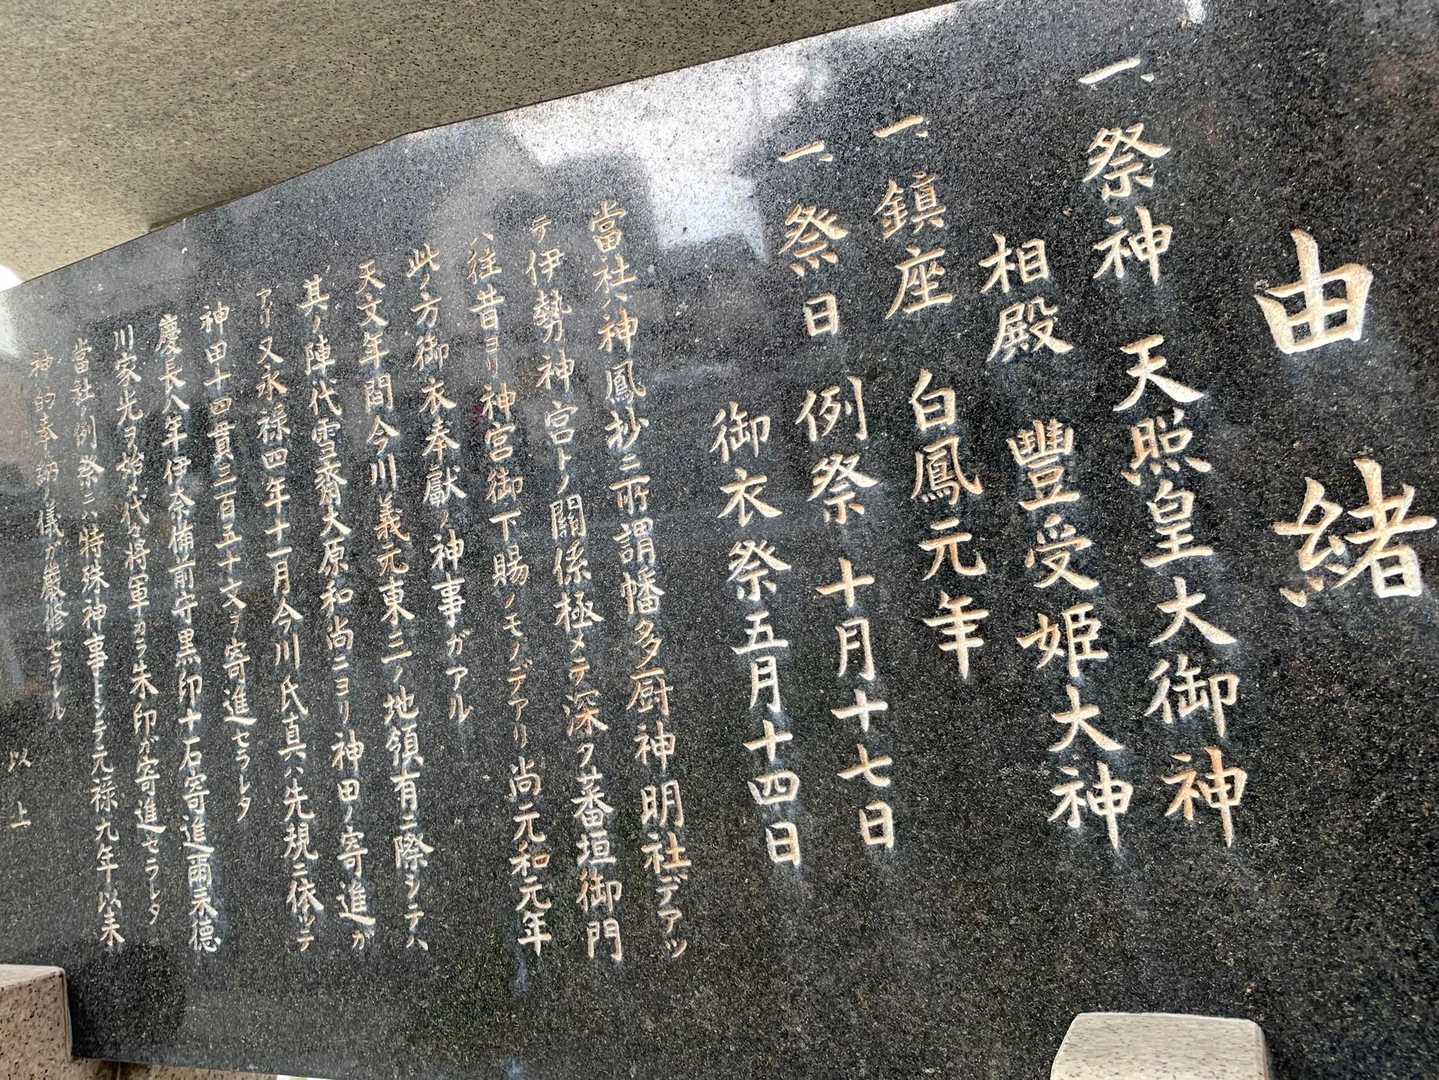 由緒
一、祭神 天照皇大御神
相殿 豐受姫大神
一、鎮座 白鳳元年
一、祭日 例祭 十月十七日
御衣祭五月十四日
當社ハ神鳳抄ニ所謂幡多厨神明社デアツ
テ伊勢神宮トノ關係極メテ深ク蕃垣御門
ハ往昔ヨリ神宮御下賜ノモノデアリ尚元和元年
此ノ方御衣奉獻ノ神事ガアル
天文年間今川義元東三ノ地領有ニ際シテハ
其ノ陣代雪齋大原和尚ニヨリ神田ノ寄進ガ
アリ又永禄四年十一月今川氏真ハ先規ニ依ツテ
神田十四貫三百五十文ヲ寄進セラレタ
慶長八年伊奈備前守黒印十石寄進爾来德
川家光ヲ始メ代々将軍カラ朱印ガ寄進セラレタ
當社ノ例祭ニハ特殊神事トシテ元禄九年以来
神的奉納ノ儀ガ嚴修セラレル
以上